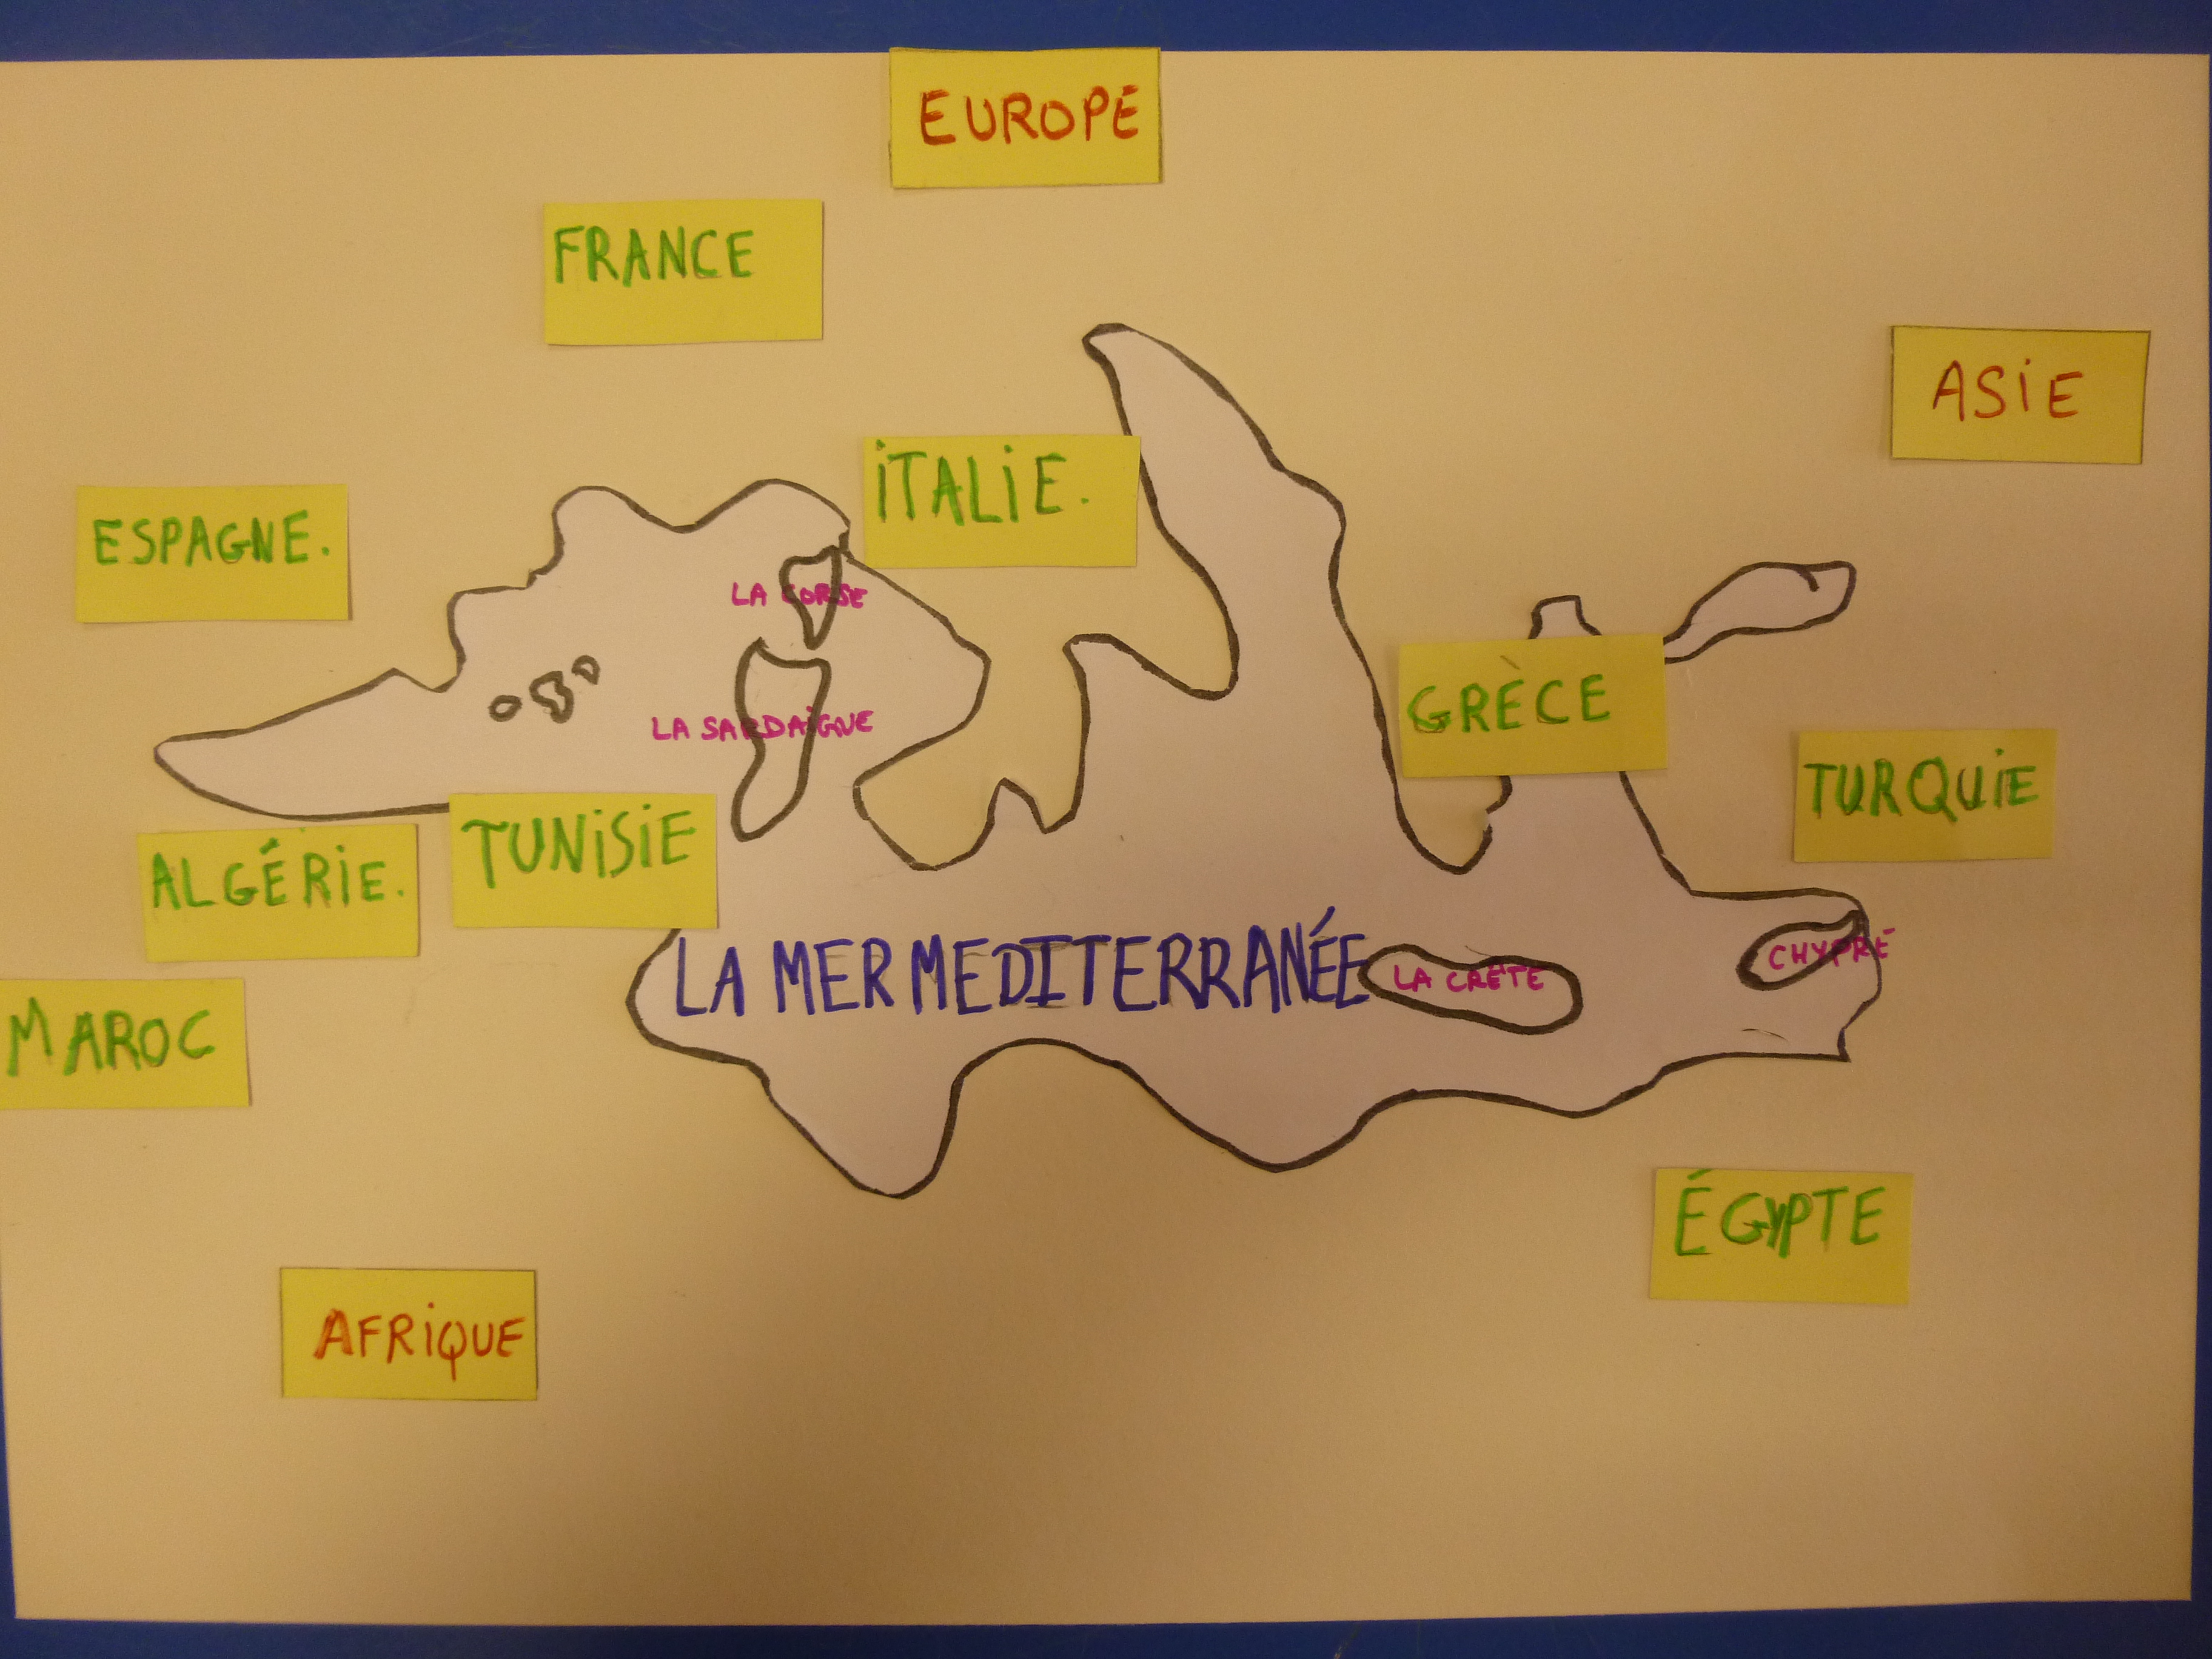 EUROPE
FRANCE
ASiE
iTALiE.
ESPAGNE.
LA CORSE
GRÈCE
LA SARDAIGNE
TURQUiE
TUNiSiE
ALGÉRiE.
LA MER MEDITERRANÉE
LA CRÊTE
CHYPRE
MAROC
ÉGYPTE
AFRiQUE